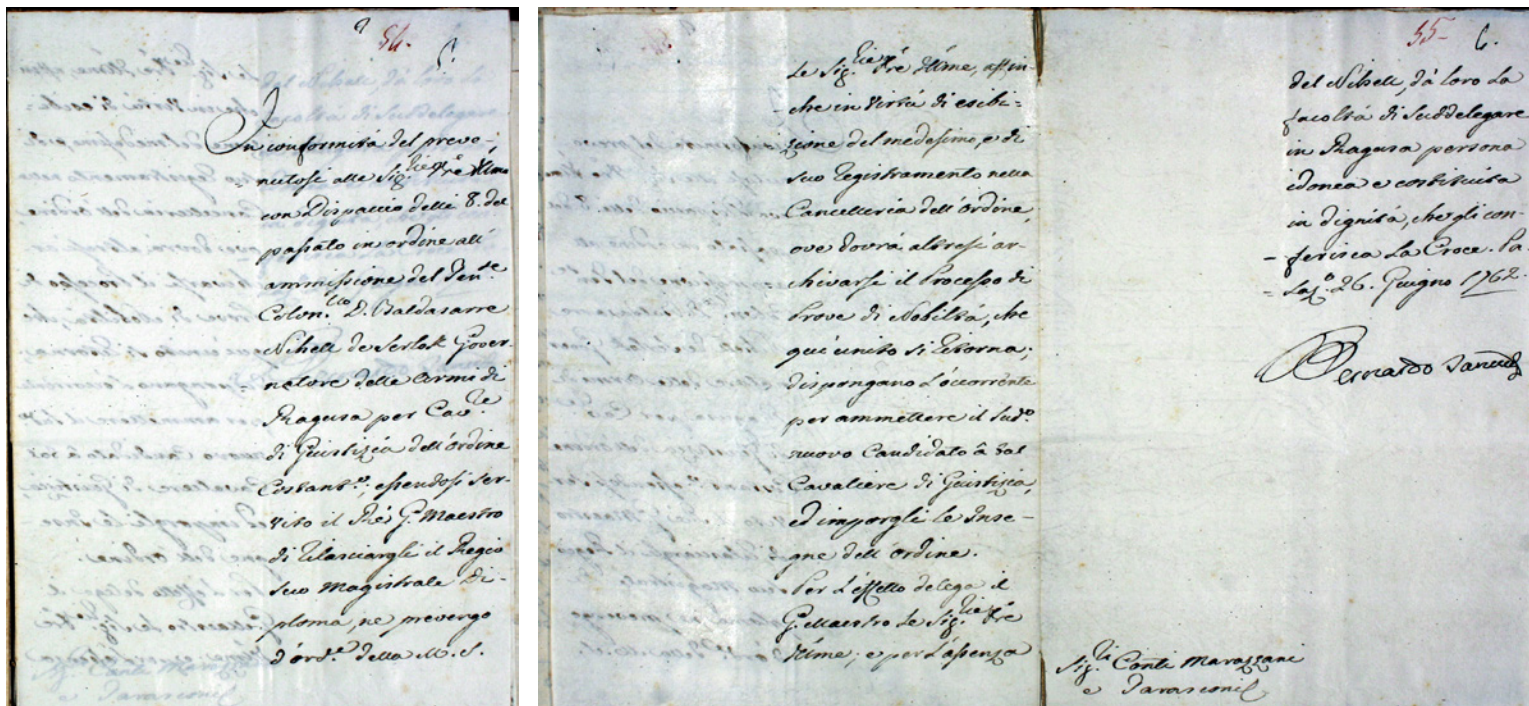 54.
6.
In conformità del preve-
= nutosi alle Sig.rie V're Ill'me
con Dispaccio delli 8. del
passato in ordine all'
ammissione del Ten.te
Colon.llo D. Baldasarre
Nihell de Serlok Gover-
= natore delle Armi di
Ragusa per Cav.re
di Giustizia dell'ordine
Costant.no; essendosi ser-
vito il Ré G. Maestro
di rilasciargli il Regio
suo Magistrale Di-
ploma, ne prevengo
d'ord.e della M. S.
Le Sig.rie V're Ill'me, affin-
- che in virtù di esibi-
zione del medesimo, e di
suo registramento nella
Cancelleria dell'ordine,
ove dovrà altresì ar-
chivarsi il Processo di
Prove di Nobiltà, che
quì unito si ritorna;
dispongano l'occorrente
per ammettere il sud.o
nuovo Candidato à tal
Cavaliere di Giustizia,
ed imporgli le Inse-
gne dell'ordine.
Per l'effetto delega il
G. Maestro le Sig.rie V're
Ill'me; e per l'assenza
55-
6.
del Nihell, dà loro la
facoltà di suddelegare
in Ragusa persona
idonea e costituita
in dignità, che gli con-
- ferisca la Croce. Pa-
= laz.o 26. Giugno 1762.
Bernardo Tanucci
Sig.ri Conti Marazzani
e Tarasconi